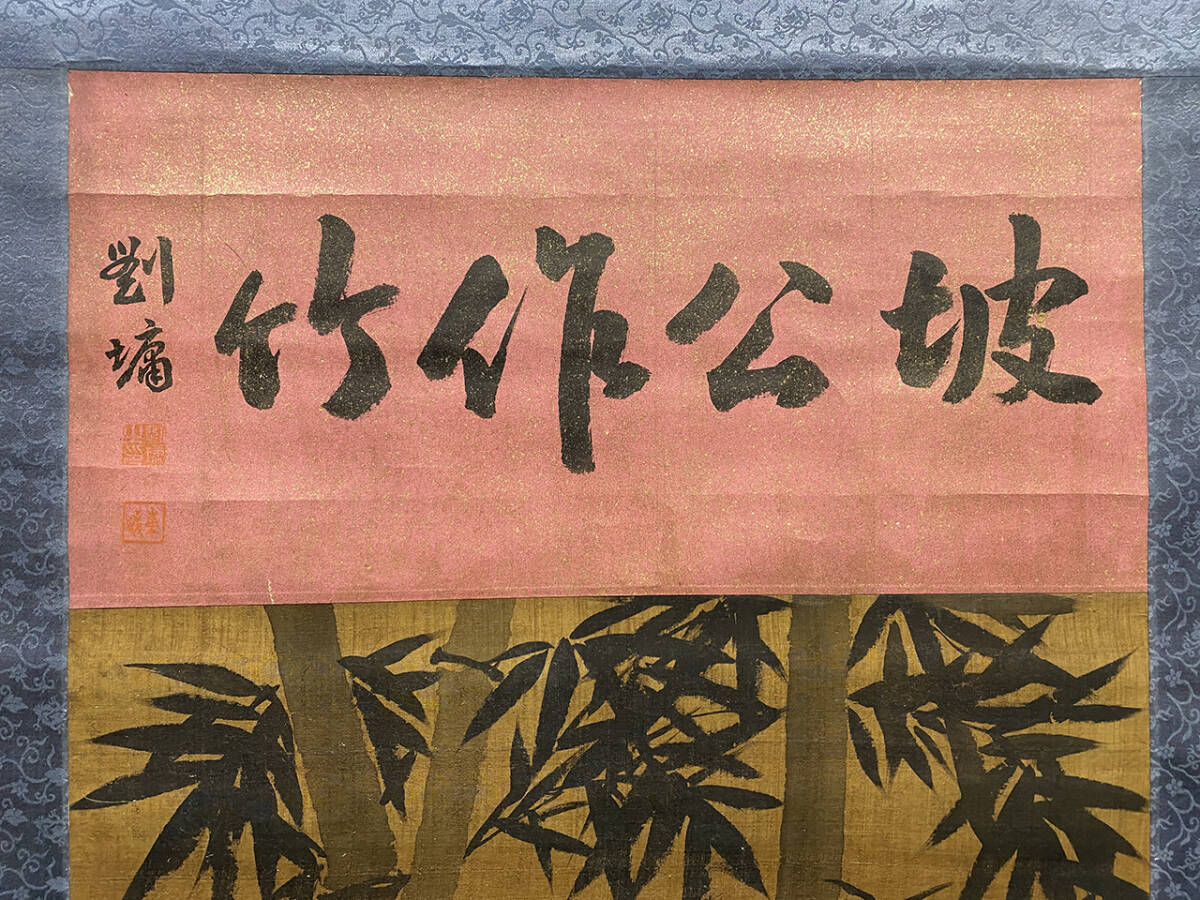 坡公作竹
劉墉